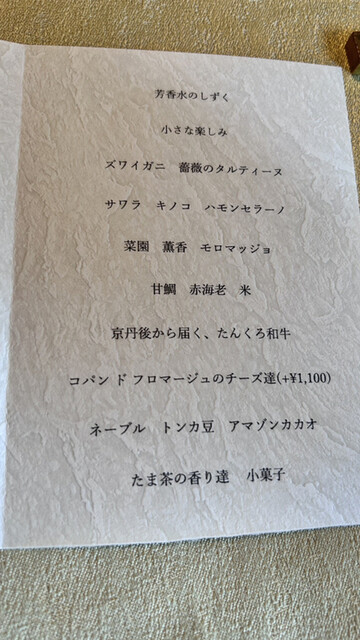 芳香水のしずく
小さな楽しみ
ズワイガニ　薔薇のタルティーヌ
サワラ　キノコ　ハモンセラーノ
菜園　薫香　モロマッジョ
甘鯛　赤海老　米
京丹後から届く、たんくろ和牛
コパン ド フロマージュのチーズ達(+¥1,100)
ネーブル　トンカ豆　アマゾンカカオ
たま茶の香り達　小菓子